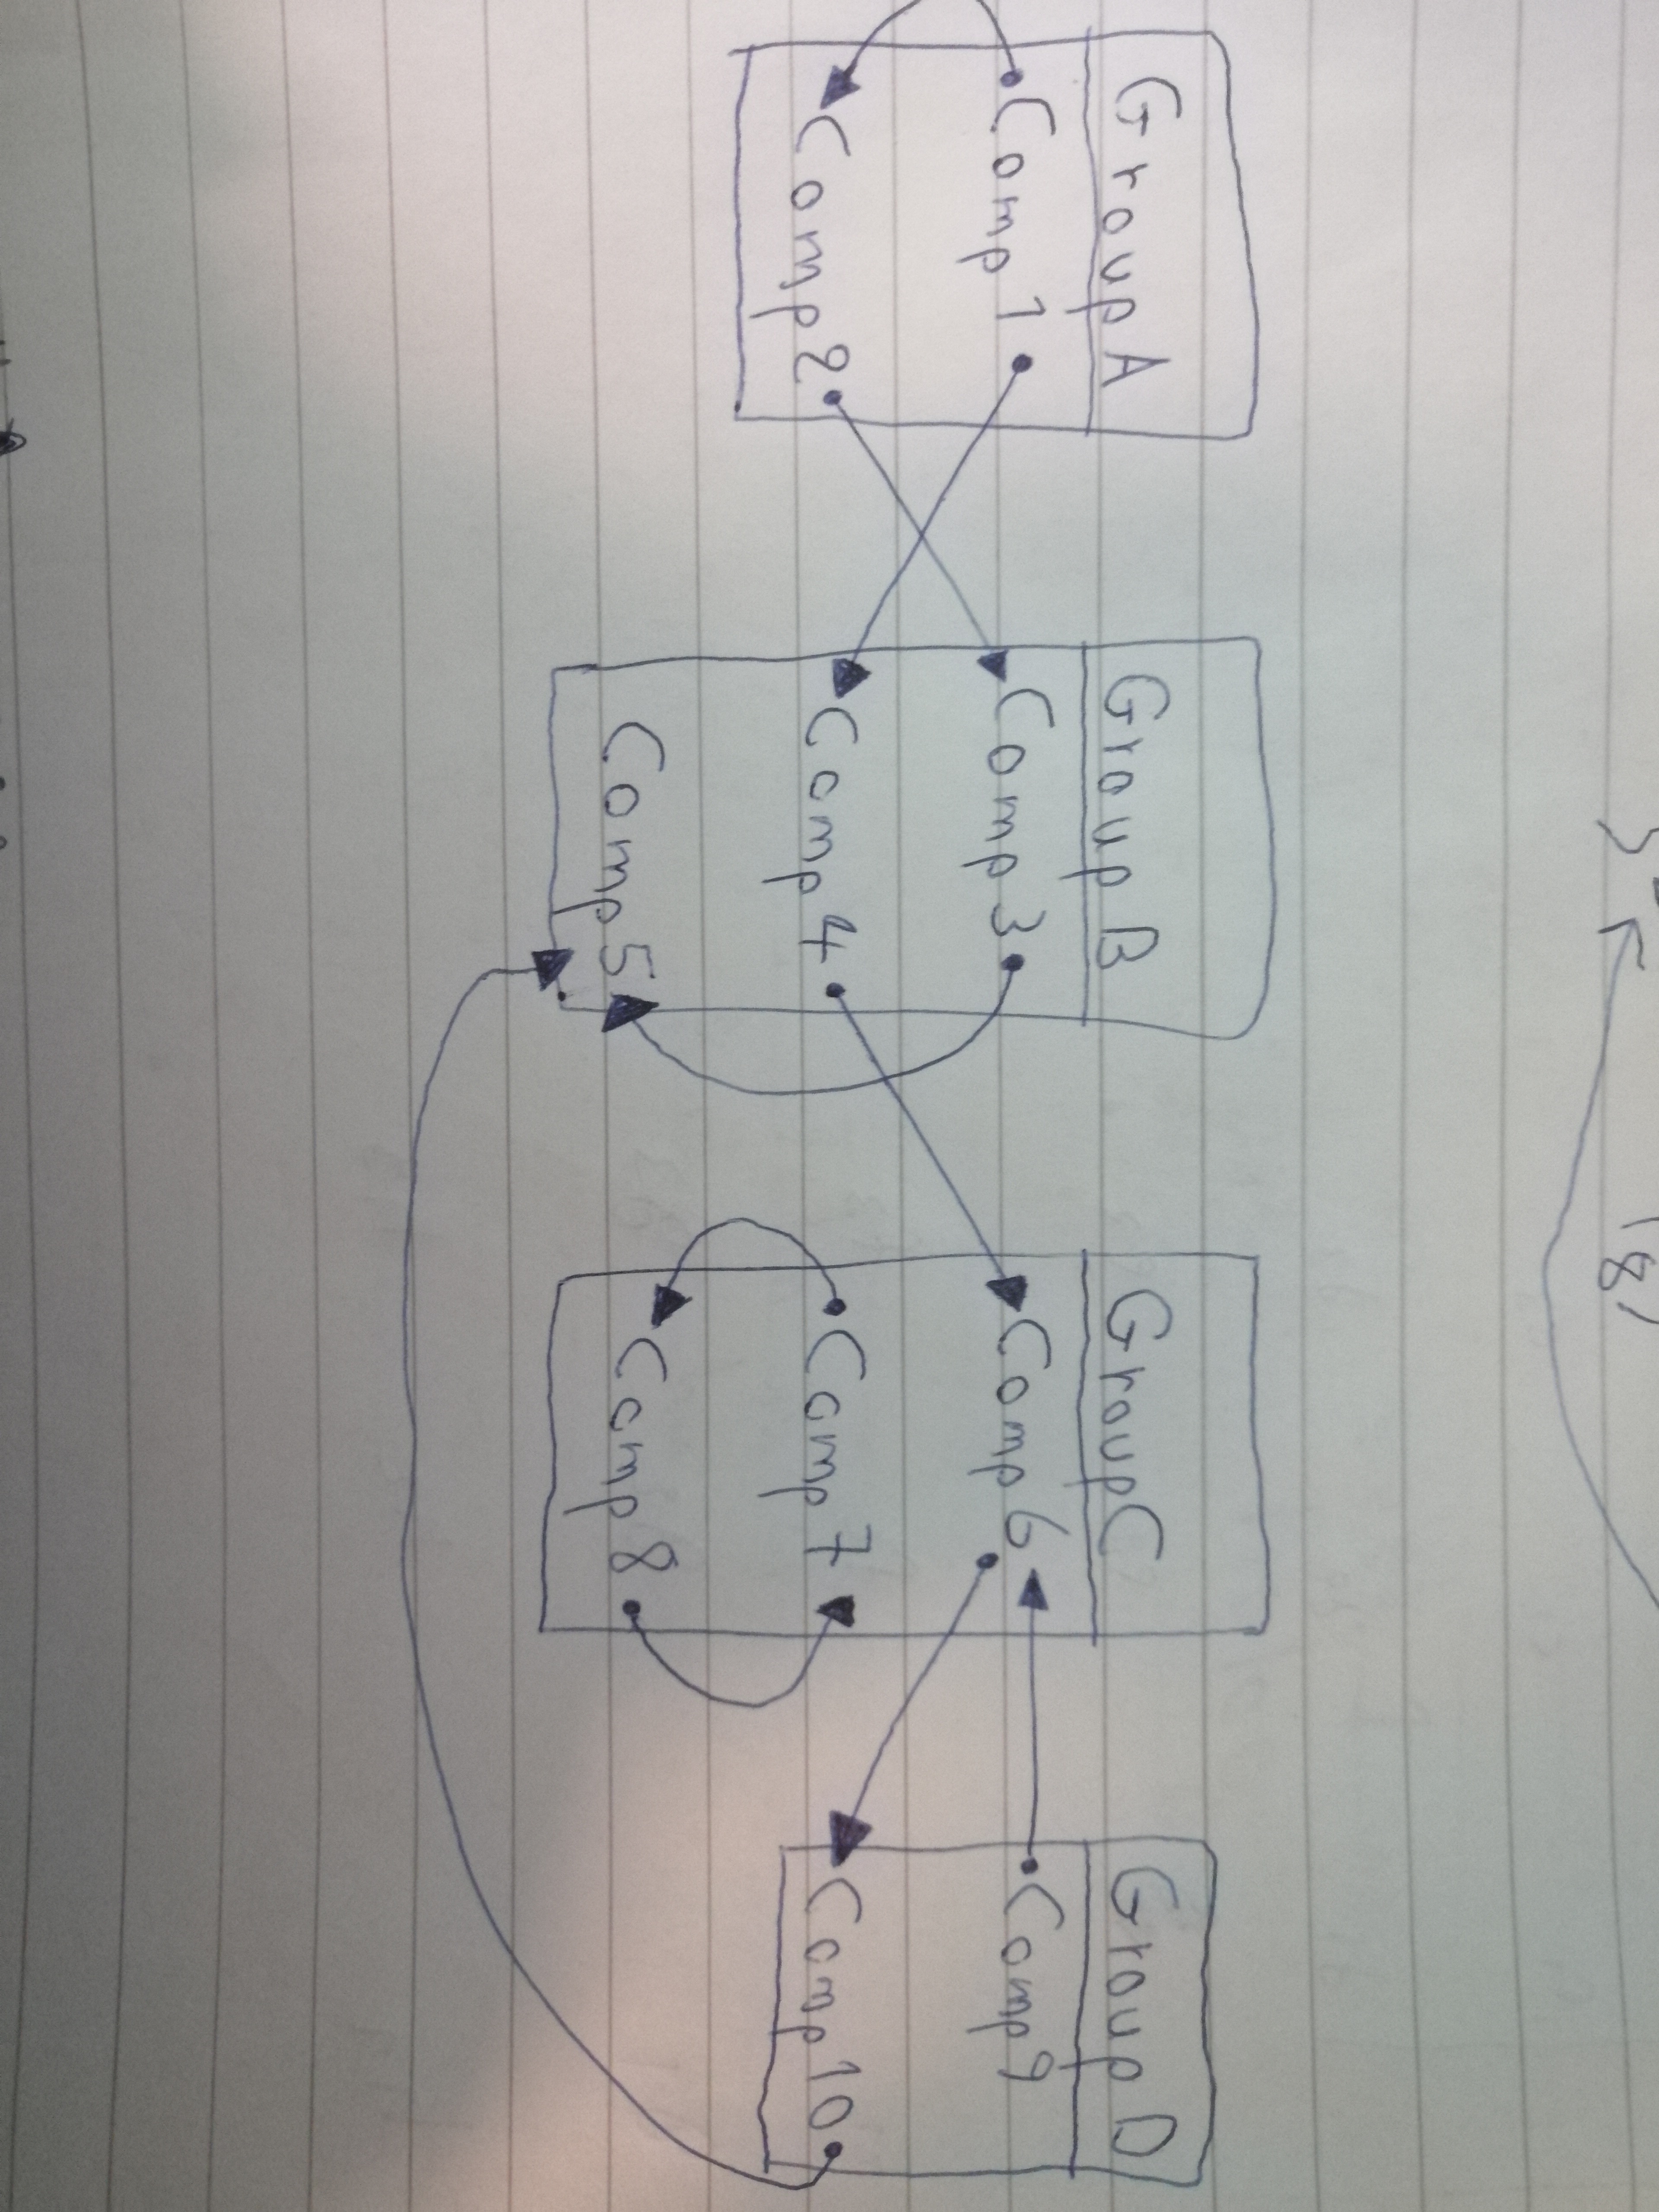 Group A
Comp 1
Comp 2
Group B
Comp 3
Comp 4
Comp 5
Group C
Comp 6
Comp 7
Comp 8
Group D
Comp 9
Comp 10